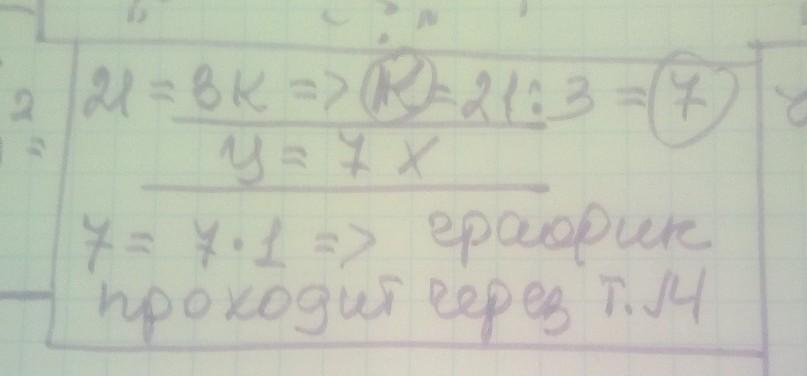 21 = 3К => К = 21 : 3 = 7
у = 7 х
7 = 7 · 1 => график
проходит через т. М